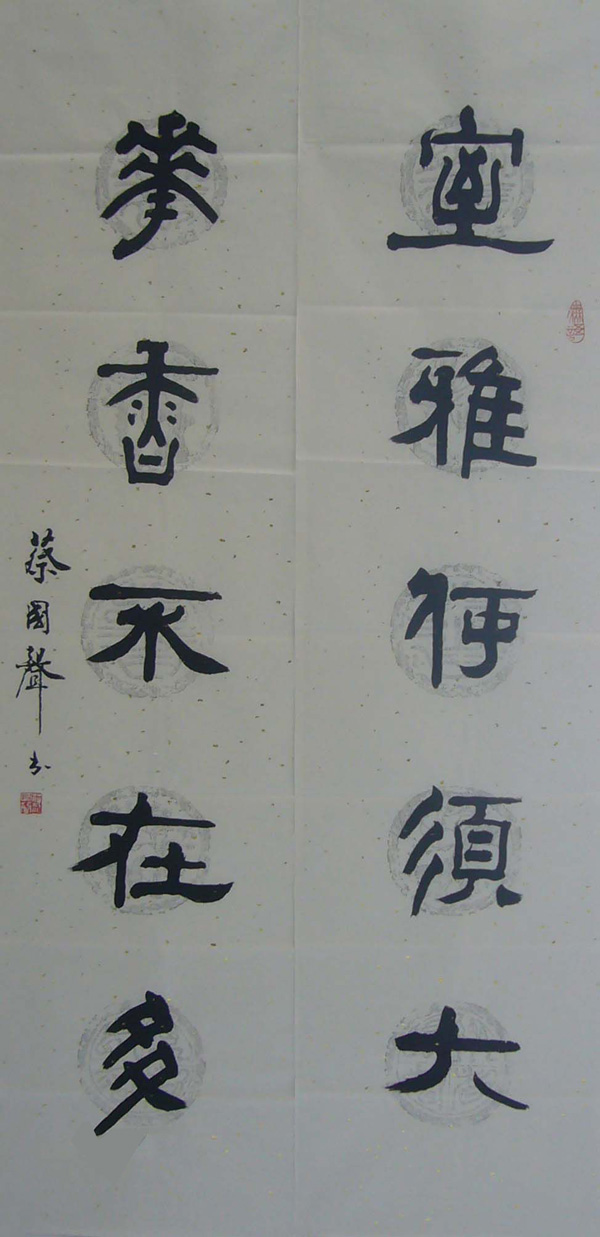 室雅何須大
華香不在多
蔡國聲书